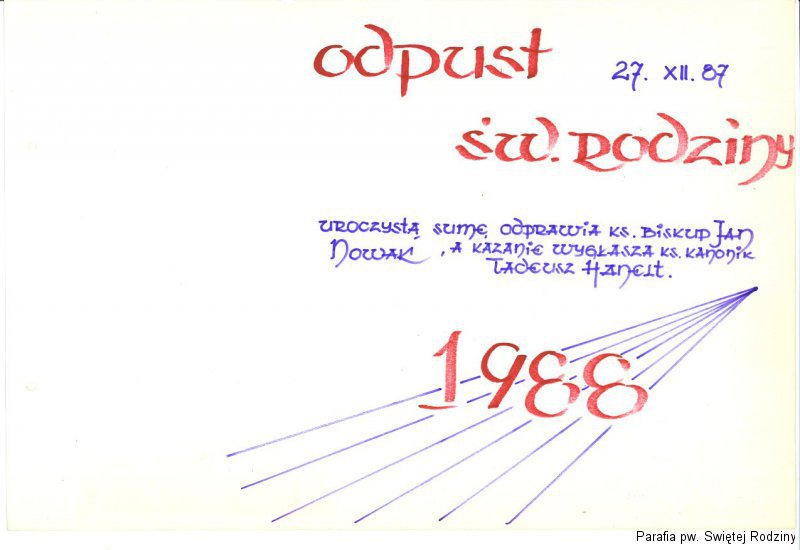 odpust
27. XII. 87
św. Rodziny
uroczystą sumę odprawia ks. Biskup Jan
Nowak, a kazanie wygłasza ks. kanonik
Tadeusz Hanelt.
1988
Parafia pw. Świętej Rodziny